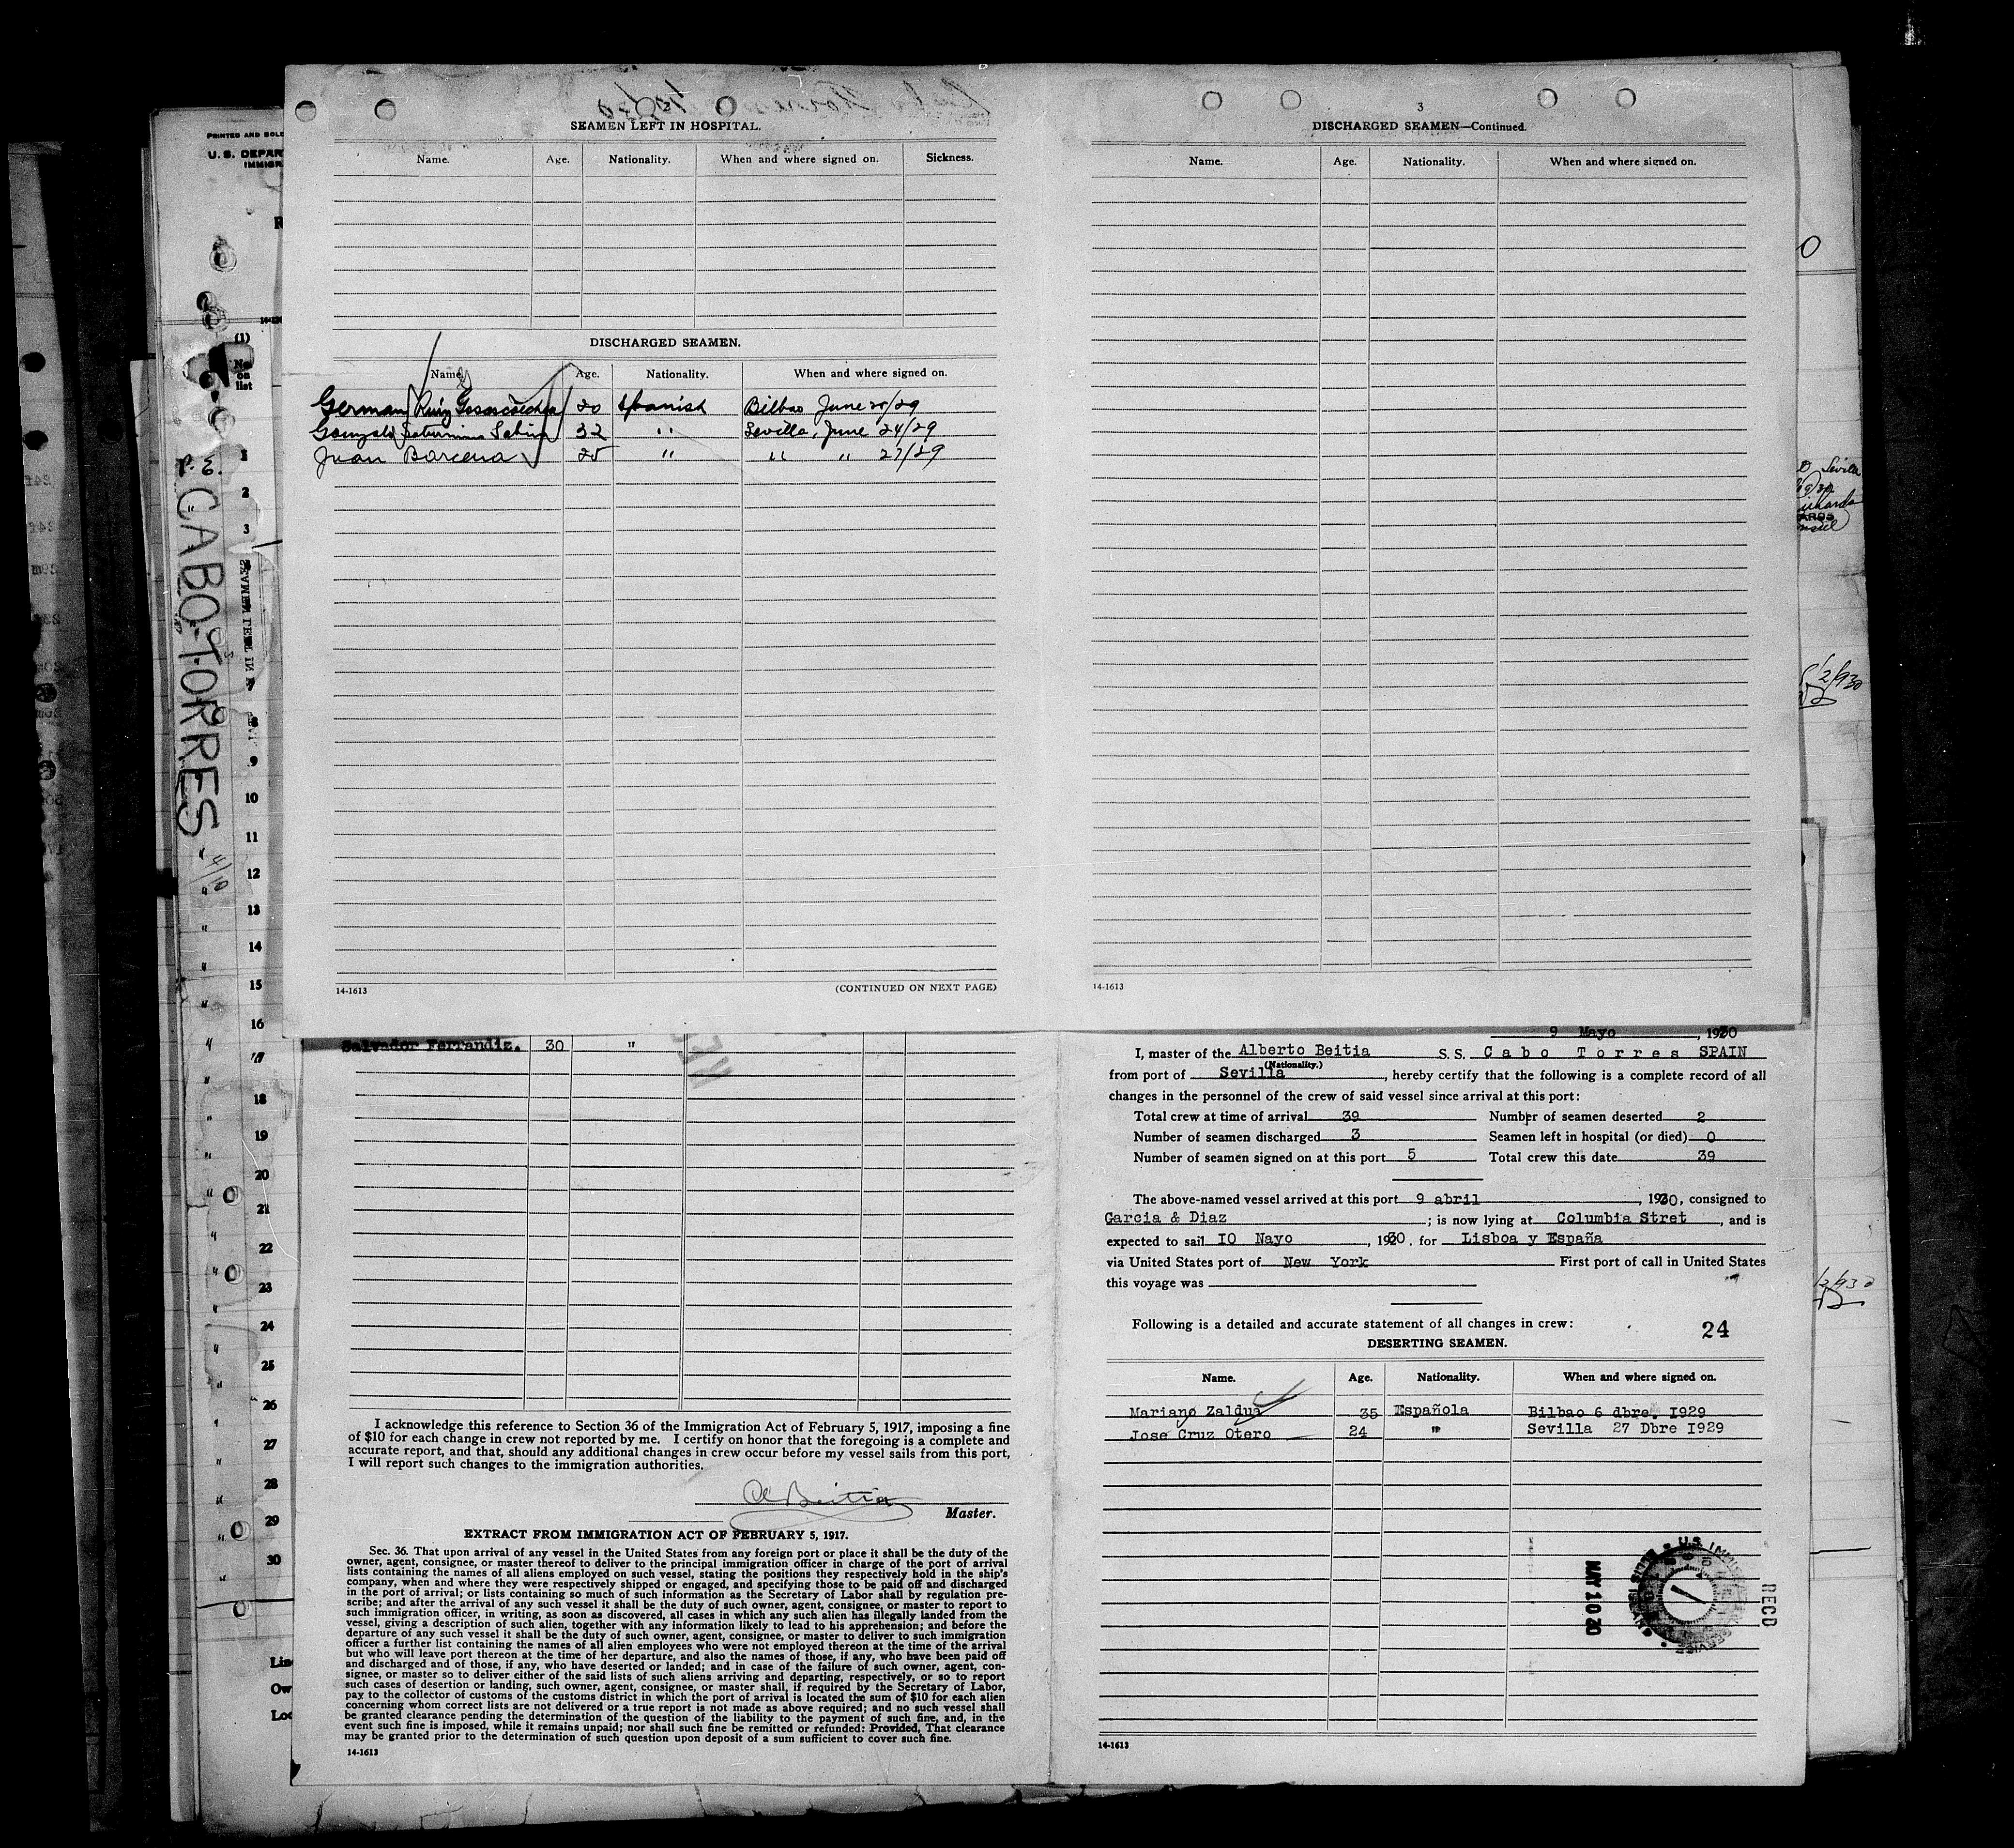 PRINTED AND SOL
U. S. DEPAR
IMMIGR
(1)
No.
on
list
P. E. CABO-TORRES - 4/10
SEAMEN LEFT IN
1
2
3
7
8
9
10
11
12
13
14
15
16
17
18
19
20
21
22
23
24
25
26
27
28
29
30
Lin
Ow
Loc
SEAMEN LEFT IN HOSPITAL.
Name. Age. Nationality. When and where signed on. Sickness.
DISCHARGED SEAMEN.
Name. Age. Nationality. When and where signed on.
German Ruiz 20 Spanish Bilbao June 20/29
Gonzalo Saturnino 32 " Sevilla, June 24/29
Juan Barcena 25 " " " 27/29
14-1613 (CONTINUED ON NEXT PAGE)
3
DISCHARGED SEAMEN—Continued.
Name. Age. Nationality. When and where signed on.
14-1613
Salvador Ferrandiz. 30 "
I acknowledge this reference to Section 36 of the Immigration Act of February 5, 1917, imposing a fine
of $10 for each change in crew not reported by me. I certify on honor that the foregoing is a complete and
accurate report, and that, should any additional changes in crew occur before my vessel sails from this port,
I will report such changes to the immigration authorities.
A Beitia
Master.
EXTRACT FROM IMMIGRATION ACT OF FEBRUARY 5, 1917.
Sec. 36. That upon arrival of any vessel in the United States from any foreign port or place it shall be the duty of the
owner, agent, consignee, or master thereof to deliver to the principal immigration officer in charge of the port of arrival
lists containing the names of all aliens employed on such vessel, stating the positions they respectively hold in the ship's
company, when and where they were respectively shipped or engaged, and specifying those to be paid off and discharged
in the port of arrival; or lists containing so much of such information as the Secretary of Labor shall by regulation pre-
scribe; and after the arrival of any such vessel it shall be the duty of such owner, agent, consignee, or master to report to
such immigration officer, in writing, as soon as discovered, all cases in which any such alien has illegally landed from the
vessel, giving a description of such alien, together with any information likely to lead to his apprehension; and before the
departure of any such vessel it shall be the duty of such owner, agent, consignee, or master to deliver to such immigration
officer a further list containing the names of all alien employees who were not employed thereon at the time of the arrival
but who will leave port thereon at the time of her departure, and also the names of those, if any, who have been paid off
and discharged and of those, if any, who have deserted or landed; and in case of the failure of such owner, agent, con-
signee, or master so to deliver either of the said lists of such aliens arriving and departing, respectively, or so to report
such cases of desertion or landing, such owner, agent, consignee, or master shall, if required by the Secretary of Labor,
pay to the collector of customs of the customs district in which the port of arrival is located the sum of $10 for each alien
concerning whom correct lists are not delivered or a true report is not made as above required; and no such vessel shall
be granted clearance pending the determination of the question of the liability to the payment of such fine, and, in the
event such fine is imposed, while it remains unpaid; nor shall such fine be remitted or refunded: Provided, That clearance
may be granted prior to the determination of such question upon deposit of a sum sufficient to cover such fine.
14-1613
9 Mayo, 1930
I, master of the Alberto Beitia S. S. Cabo Torres SPAIN
(Nationality.)
from port of Sevilla, hereby certify that the following is a complete record of all
changes in the personnel of the crew of said vessel since arrival at this port:
Total crew at time of arrival 39 Number of seamen deserted 2
Number of seamen discharged 3 Seamen left in hospital (or died) 0
Number of seamen signed on at this port 5 Total crew this date 39
The above-named vessel arrived at this port 9 abril, 1930, consigned to
Garcia & Diaz; is now lying at Columbia Stret, and is
expected to sail IO Nayo, 1930. for Lisboa y España
via United States port of New York First port of call in United States
this voyage was
Following is a detailed and accurate statement of all changes in crew:
24
DESERTING SEAMEN.
Name. Age. Nationality. When and where signed on.
Mariano Zaldua 35 Española Bilbao 6 dbre. I929
Jose Cruz Otero 24 " Sevilla 27 Dbre I929
MAY 10
RECD
14-1613